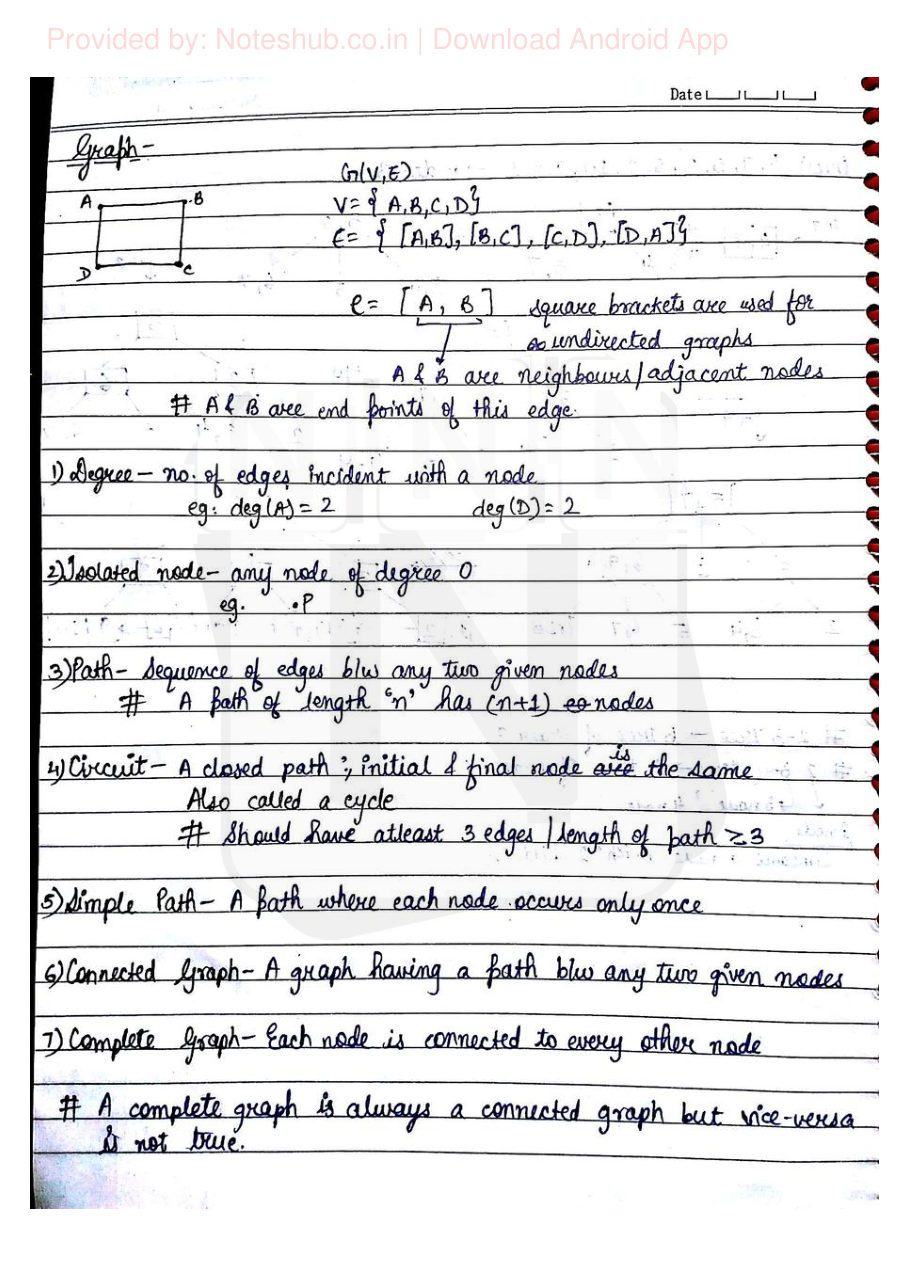 Provided by: Noteshub.co.in | Download Android App
Date
Graph-
G(V,E)
A B
V= { A,B,C,D}
E= { [A,B], [B,C], [C,D], [D,A]}
D C
e= [A, B] square brackets are used for
undirected graphs
A & B are neighbours/adjacent nodes
# A & B are end points of this edge.
1) Degree- no. of edges incident with a node
eg: deg(A)= 2 deg(D)= 2
2) Isolated node- any node of degree 0
eg. .P
3) Path- Sequence of edges b/w any two given nodes
# A path of length 'n' has (n+1) nodes
4) Circuit- A closed path ; initial & final node is the same
Also called a cycle
# Should have atleast 3 edges / length of path ≥3
5) Simple Path- A path where each node occurs only once
6) Connected Graph- A graph having a path b/w any two given nodes
7) Complete Graph- Each node is connected to every other node
# A complete graph is always a connected graph but vice-versa
is not true.